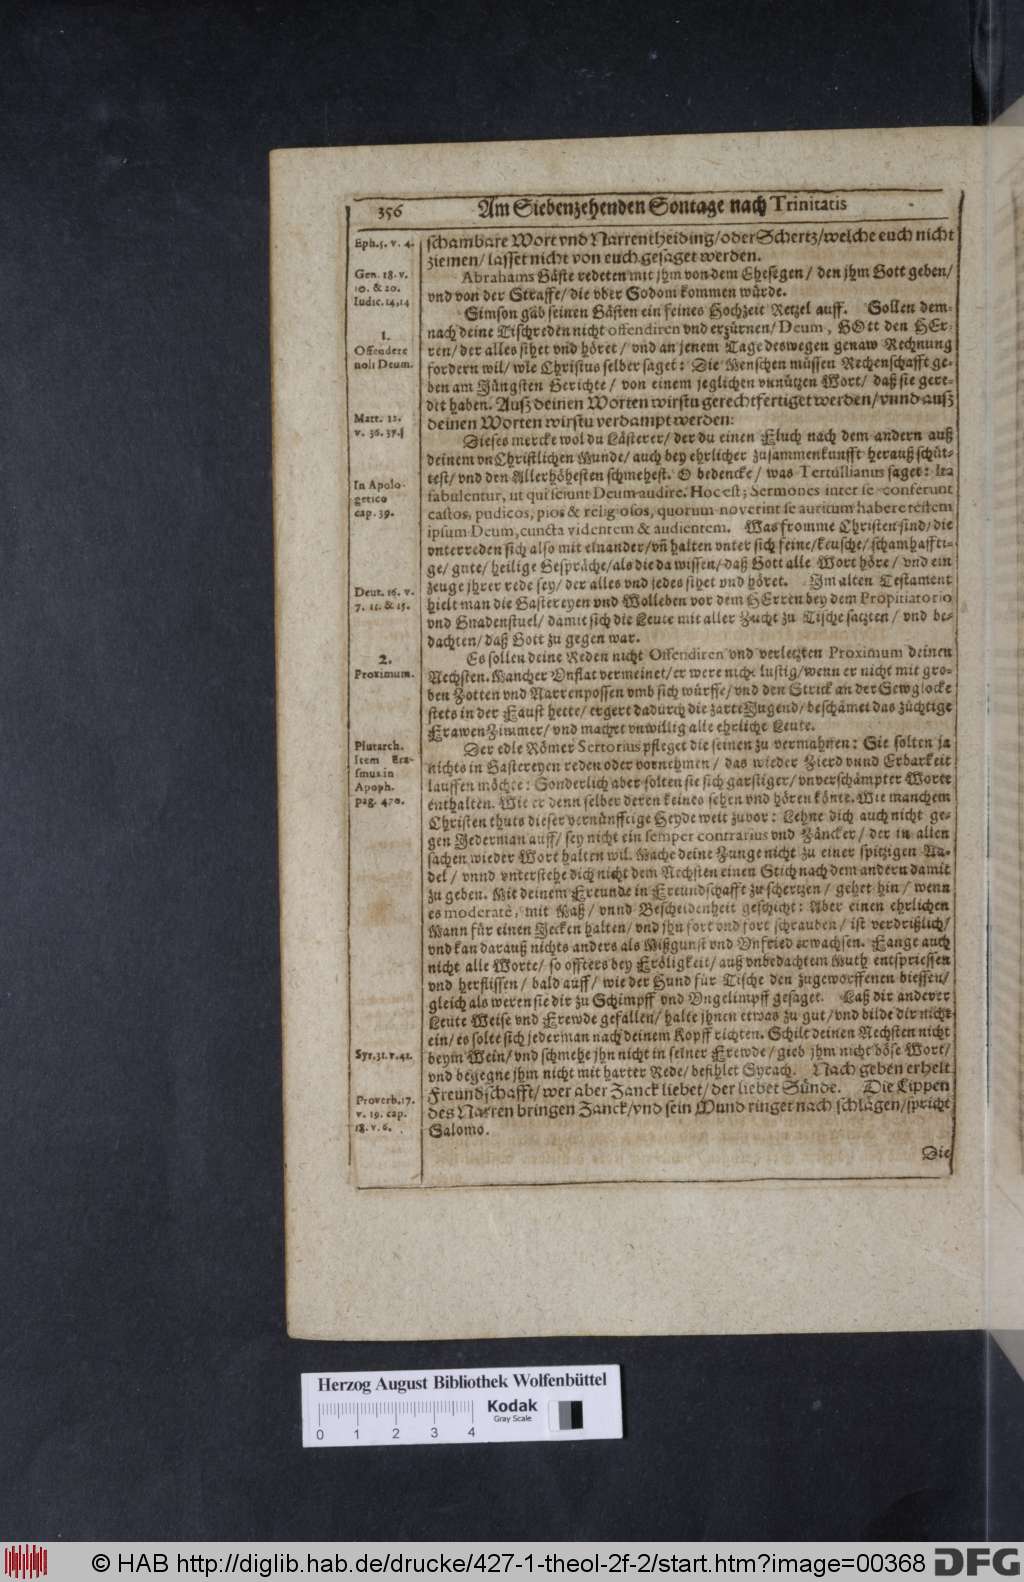 356 Am Siebenzehenden Sontage nach Trinitatis
Eph. 5. v. 4.
schambare Wort vnd Narrentheiding/ oder Schertz/ welche euch nicht
ziemen/ lasset nicht von euch gesaget werden.
Gen. 18. v.
10. & 20.
Iudic. 14, 14
Abrahams Gäste redeten mit jhm von dem Ehesegen/ den jhm Gott geben/
vnd von der Straffe/ die vber Sodom kommen würde.
Simson gab seinen Gästen ein feines Hochzeit Retzel auff. Sollen dem-
1.
Offendere
noli Deum.
nach deine Tischreden nicht offendiren vnd erzürnen/ Deum, GOtt den HEr-
ren/ der alles sihet vnd höret/ vnd an jenem Tage deswegen genaw Rechnung
fordern wil/ wie Christus selber saget: Die Menschen müssen Rechenschafft ge-
ben am Jüngsten Gerichte/ von einem jeglichen vnnützen Wort/ daß sie gere-
det haben. Auß deinen Worten wirstu gerechtfertiget werden/ vnnd auß
Matt. 12.
v. 36. 37.
deinen Worten wirstu verdampt werden:
Dieses mercke wol du Lästerer/ der du einen Fluch nach dem andern auß
deinem vnChristlichen Munde/ auch bey ehrlicher zusammenkunfft herauß schüt-
test/ vnd den Allerhöhesten schmehest. O bedencke/ was Tertullianus saget: Ita
In Apolo-
getico
cap. 39.
fabulentur, ut qui sciunt Deum audire. Hoc est; Sermones inter se conferunt
castos, pudicos, pios & religiosos, quorum noverint se auritum habere testem
ipsum Deum, cuncta videntem & audientem. Was fromme Christen sind/ die
vnterreden sich also mit einander/ vñ halten vnter sich feine/ keusche/ schamhaffti-
ge/ gute/ heilige Gespräche/ als die da wissen/ daß Gott alle Wort höre/ vnd ein
zeuge jhrer rede sey/ der alles vnd jedes sihet vnd höret. Im alten Testament
Deut. 16. v.
7. 11. & 15.
hielt man die Gastereyen vnd Wolleben vor dem HErren bey dem Propitiatorio
vnd Gnadenstuel/ damit sich die Leute mit aller Zucht zu Tische satzten/ vnd be-
dachten/ daß Gott zu gegen war.
2.
Proximum.
Es sollen deine Reden nicht Offendiren vnd verletzten Proximum deinen
Nechsten. Mancher Vnflat vermeinet/ er were nicht lustig/ wenn er nicht mit gro-
ben Zotten vnd Narrenpossen vmb sich würffe/ vnd den Strick an der Sewglocke
stets in der Faust hette/ ergert dadurch die zarte Jugend/ beschämet das züchtige
FrawenZimmer/ vnd machet vnwillig alle ehrliche Leute.
Plutarch.
Item Eras-
mus in
Apoph.
pag. 470.
Der edle Römer Sertorius pfleget die seinen zu vermahnen: Sie solten ja
nichts in Gastereyen reden oder vornehmen/ das wieder Zierd vnnd Erbarkeit
lauffen möchte: Sonderlich aber solten sie sich garstiger/ vnverschämpter Worte
enthalten. Wie er denn selber deren keines sehen vnd hören könte. Wie manchem
Christen thuts dieser vernünfftige Heyde weit zuvor: Lehne dich auch nicht ge-
gen Jederman auff/ sey nicht ein semper contrarius vnd Zäncker/ der in allen
sachen wieder Wort halten wil. Mache deine Zunge nicht zu einer spitzigen Na-
del/ vnnd vnterstehe dich nicht dem Nechsten einen Stich nach dem andern damit
zu geben. Mit deinem Freunde in Freundschafft zu schertzen/ gehet hin/ wenn
es moderatè, mit Maß/ vnnd Bescheidenheit geschicht: Aber einen ehrlichen
Mann für einen Jecken halten/ vnd jhn fort vnd fort schrauben/ ist verdrißlich/
vnd kan darauß nichts anders als Mißgunst vnd Vnfried erwachsen. Fange auch
nicht alle Worte/ so offters bey Fröligkeit/ auß vnbedachtem Muth entspriessen
vnd herflissen/ bald auff/ wie der Hund für Tische den zugeworffenen biessen/
gleich als weren sie dir zu Schimpff vnd Vngelimpff gesaget. Laß dir anderer
Leute Weise vnd Frewde gefallen/ halte jhnen etwas zu gut/ vnd bilde dir nicht
ein/ es solte sich jederman nach deinem Kopff richten. Schilt deinen Nechsten nicht
Syr. 31. v. 42.
beym Wein/ vnd schmehe jhn nicht in seiner Frewde/ gieb jhm nicht böse Wort/
vnd begegne jhm nicht mit harter Rede/ befihlet Syrach. Nach geben erhelt
Freundschafft/ wer aber Zanck liebet/ der liebet Sünde. Die Lippen
Proverb. 17.
v. 19. cap.
18. v. 6.
des Narren bringen Zanck/ vnd sein Mund ringet nach schlägen/ spricht
Salomo.
Die
Herzog August Bibliothek Wolfenbüttel
Kodak
Gray Scale
0 1 2 3 4
© HAB http://diglib.hab.de/drucke/427-1-theol-2f-2/start.htm?image=00368 DFG